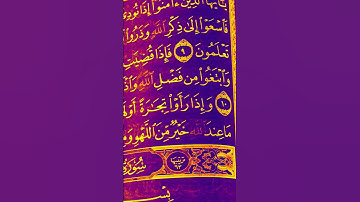 يَٰٓأَيُّهَا ٱلَّذِينَ ءَامَنُوٓا۟ إِذَا نُودِيَ
فَٱسْعَوْا۟ إِلَىٰ ذِكْرِ ٱللَّهِ وَذَرُوا۟
تَعْلَمُونَ ٩ فَإِذَا قُضِيَتِ
وَٱبْتَغُوا۟ مِن فَضْلِ ٱللَّهِ
١٠ وَإِذَا رَأَوْا۟ تِجَٰرَةً أَوْ
مَا عِندَ ٱللَّهِ خَيْرٌ مِّنَ ٱللَّهْوِ
سُورَةُ